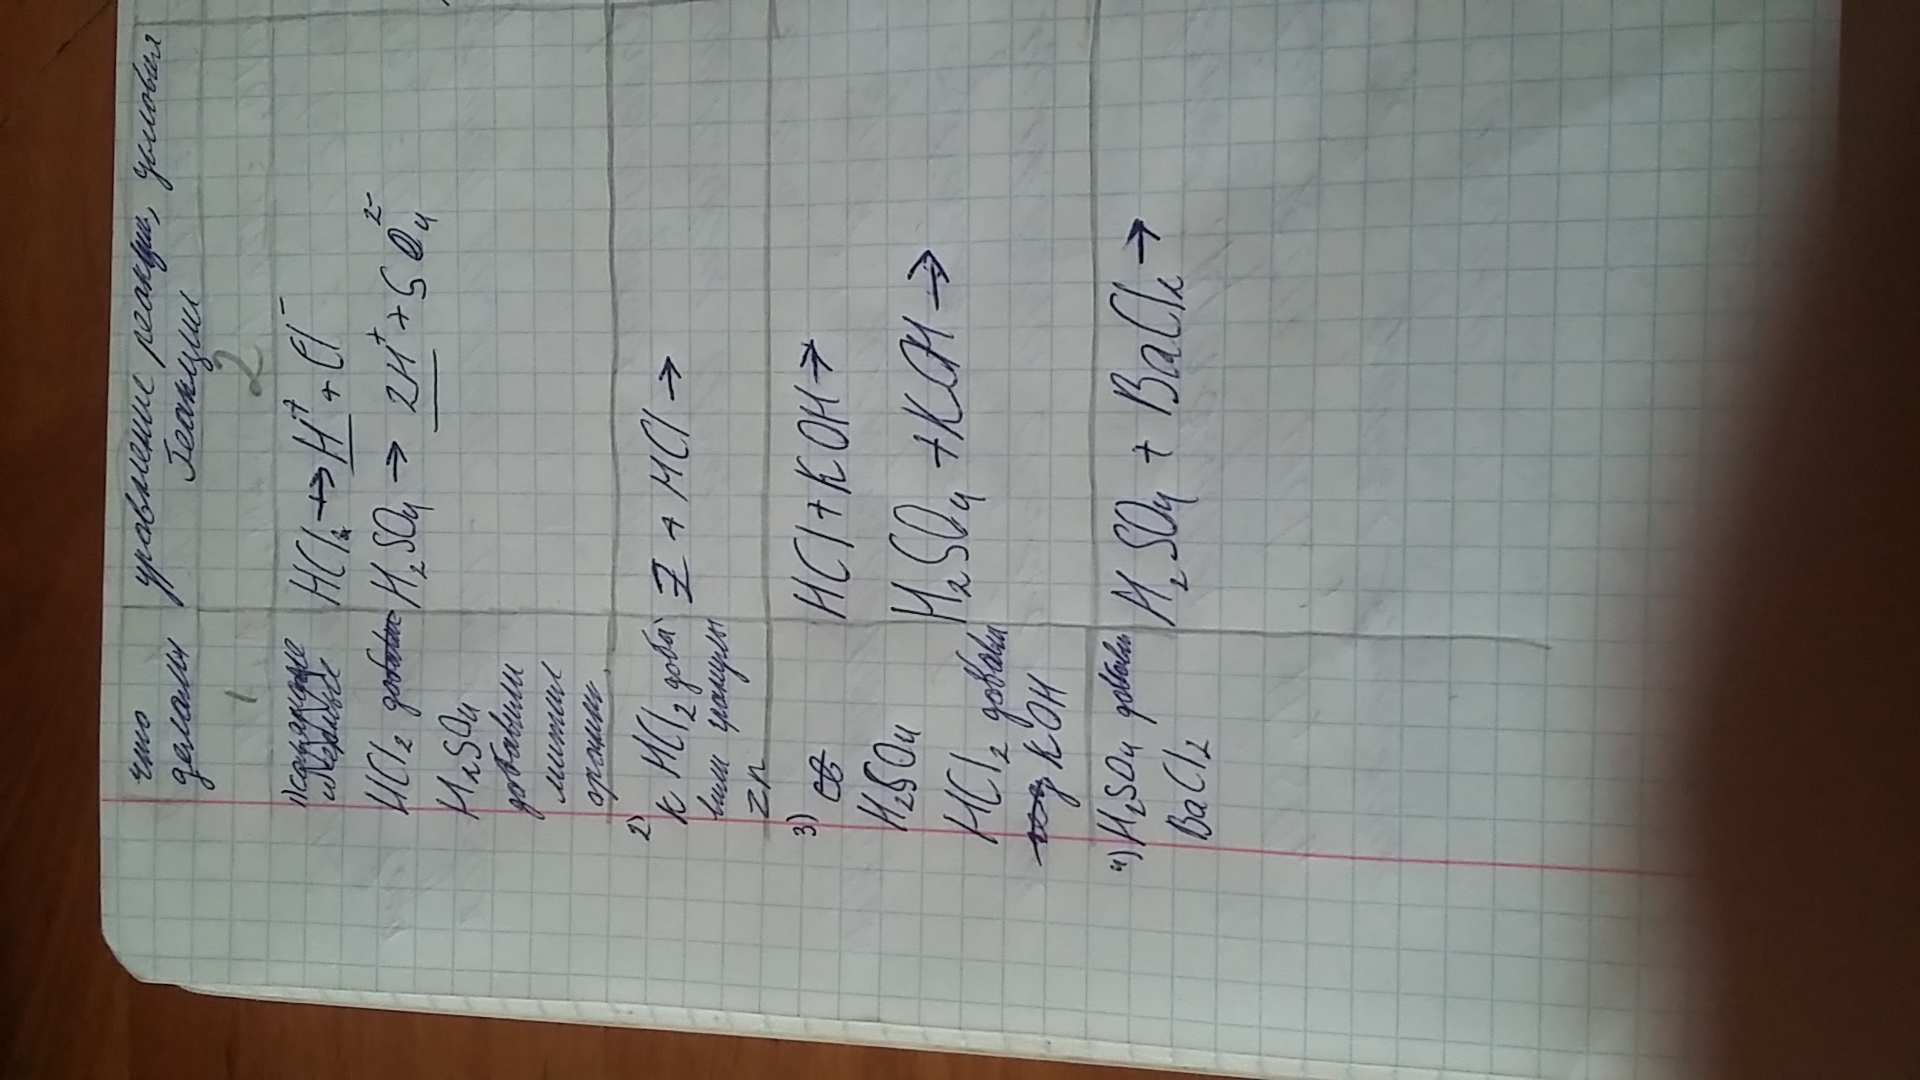 что делали
уравнение реакции, условия
реакции
1
2
1)
HCl2
H2SO4
добавили
метил
оранж.
HCl2 → H⁺ + Cl⁻
H2SO4 → 2H⁺ + SO4²⁻
2)
к HCl2 доба
вили гранулы
Zn
Z + HCl →
3)
H2SO4
HCl2 добавили
KOH
HCl + KOH →
H2SO4 + KOH →
4) H2SO4 добавили
BaCl2
H2SO4 + BaCl2 →